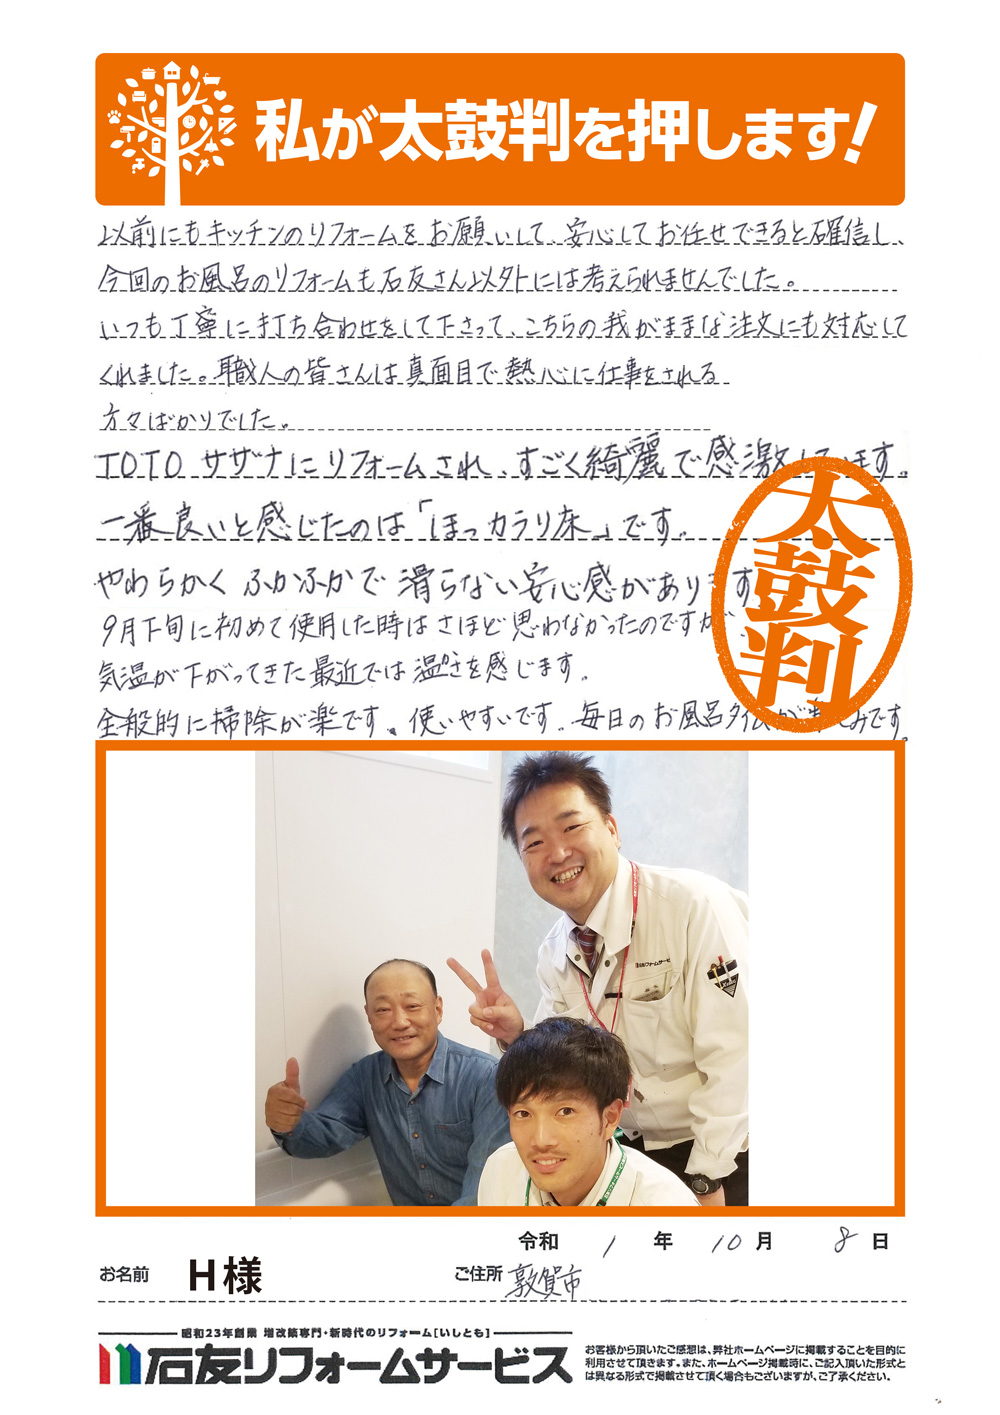 私が太鼓判を押します!
以前にもキッチンのリフォームをお願いして、安心してお任せできると確信し、
今回のお風呂のリフォームも石友さん以外には考えられませんでした。
いつも丁寧に打ち合わせをして下さって、こちらの我がままな注文にも対応して
くれました。職人の皆さんは真面目で熱心に仕事をされる
方々ばかりでした。
TOTO サザナにリフォームされ、すごく綺麗で感激しています。
一番良いと感じたのは「ほっカラリ床」です。
やわらかく ふかふかで 滑らない安心感があります
9月下旬に初めて使用した時はさほど思わなかったのですが、
気温が下がってきた最近では温かさを感じます。
全般的に掃除が楽です。使いやすいです。毎日のお風呂タイムが楽しみです。
太鼓判
石友リフォームサービ
令和 1 年 10 月 8 日
お名前 H様 ご住所 敦賀市
昭和23年創業 増改築専門・新時代のリフォーム[いしとも]
石友リフォームサービス
お客様から頂いたご感想は、弊社ホームページに掲載することを目的に
利用させて頂きます。また、ホームページ掲載時に、ご記入頂いた形式と
は異なる形式で掲載させて頂く場合もございますが、ご了承ください。